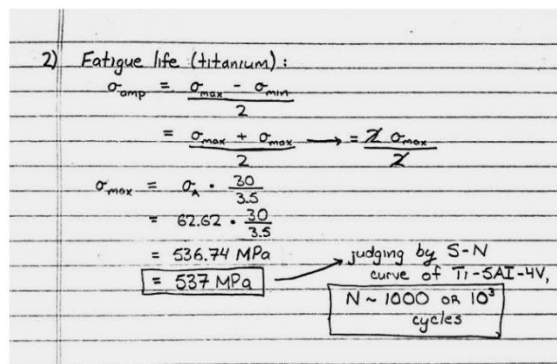 2) Fatigue life (titanium):
σamp = σmax - σmin / 2
= σmax + σmax / 2 → = 2 σmax / 2
σmax = σA · 30 / 3.5
= 62.62 · 30 / 3.5
= 536.74 MPa
= 537 MPa → judging by S-N
curve of Ti-5Al-4V,
N ~ 1000 or 10³
cycles